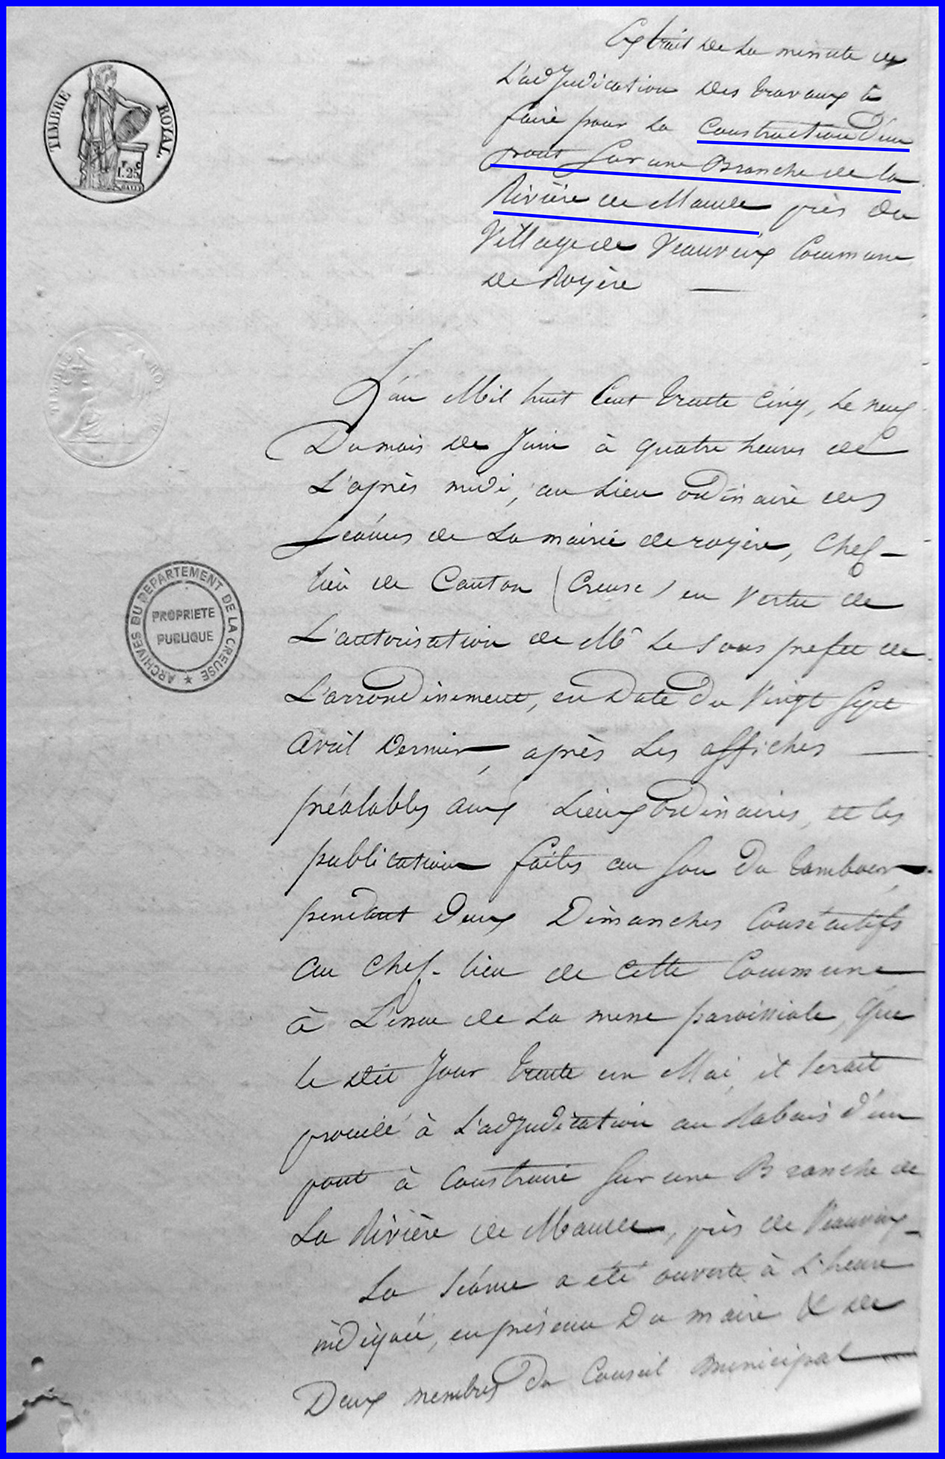 TIMBRE ROYAL
1.25
Extrait de la minute de
L'adjudication des travaux à
faire pour la Construction d'un
pont sur une Branche de la
Rivière de Maulde près du
Village de Veauveix Commune
de Royère
L'an Mil huit Cent trente Cinq, le neuf
Du mois de Juin à quatre heures de
L'après midi, au Lieu ordinaire des
séances de La mairie de royère, Chef-
lieu de Canton (Creuse) en Vertu de
L'autorisation de Mr Le Sous prefet de
L'arrondissement, en Date du Vingt Sept
avril Dernier, après Les affiches
préalables aux Lieux ordinaires, et les
publication faites au Son du tambour,
pendant Deux Dimanches Consécutifs
au Chef-lieu de Cette Commune
à L'issue de La messe paroissiale, que
le dit Jour trente un Mai, il serait
procédé à L'adjudication au Rabais d'un
pont à Construire Sur une Branche de
La Rivière de Maulde, près de Veauveix
La Séance a été ouverte à L'heure
indiquée, en présence Du maire & de
Deux membres du Conseil municipal
ARCHIVES DU DÉPARTEMENT DE LA CREUSE
PROPRIÉTÉ
PUBLIQUE